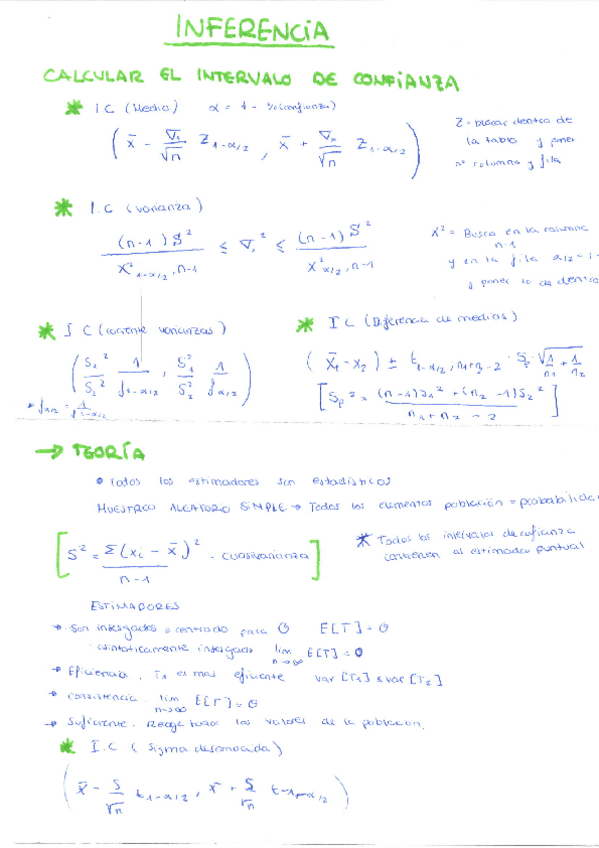 INFERENCIA
CALCULAR EL INTERVALO DE CONFIANZA
* IC (Media) α = 1 - %(confianza)
( x̄ - σx/√n Z1-α/2 , x̄ + σx/√n Z1-α/2 )
Z = buscar dentro de
la tabla y poner
nº columna y fila
* I.C (varianza)
(n-1)S²/X²1-α/2, n-1 ≤ σ² ≤ (n-1)S²/X²α/2, n-1
X² = Busca en la columna
n-1
y en la fila α/2 = 1-
y poner lo de dentro
* I C (cociente varianzas)
( S1²/S2² 1/f1-α/2 , S1²/S2² 1/fα/2 )
* fα/2 = 1/f1-α/2
* I C (Diferencia de medias)
( x̄1 - x2 ) ± t1-α/2, n1+n2-2 · Sp √1/n1 + 1/n2
[ Sp² = (n-1)S1² + (n2-1)S2² / n1+n2-2 ]
→ TEORÍA
• Todos los estimadores son estadísticos
MUESTREO ALEATORIO SIMPLE → Todos los elementos población = probabilida
[ S² = Σ(xi - x̄)² / n-1 · cuasivarianza ]
* Todos los intervalos de cofianza
contienen al estimador puntual
ESTIMADORES
→ Son insesgados o centrado para Θ E[T] = Θ
asintóticamente insesgado lim n→∞ E[T] = Θ
→ Eficiencia. T1 es mas eficiente var [T1] ≤ var [T2]
→ consistencia. lim n→∞ E[T] = Θ
→ Suficiente. Recoge todos los valores de la población.
* I.C ( Sigma desconocida)
( x̄ - S/√n t1-α/2 , x̄ + S/√n t1-α/2 )